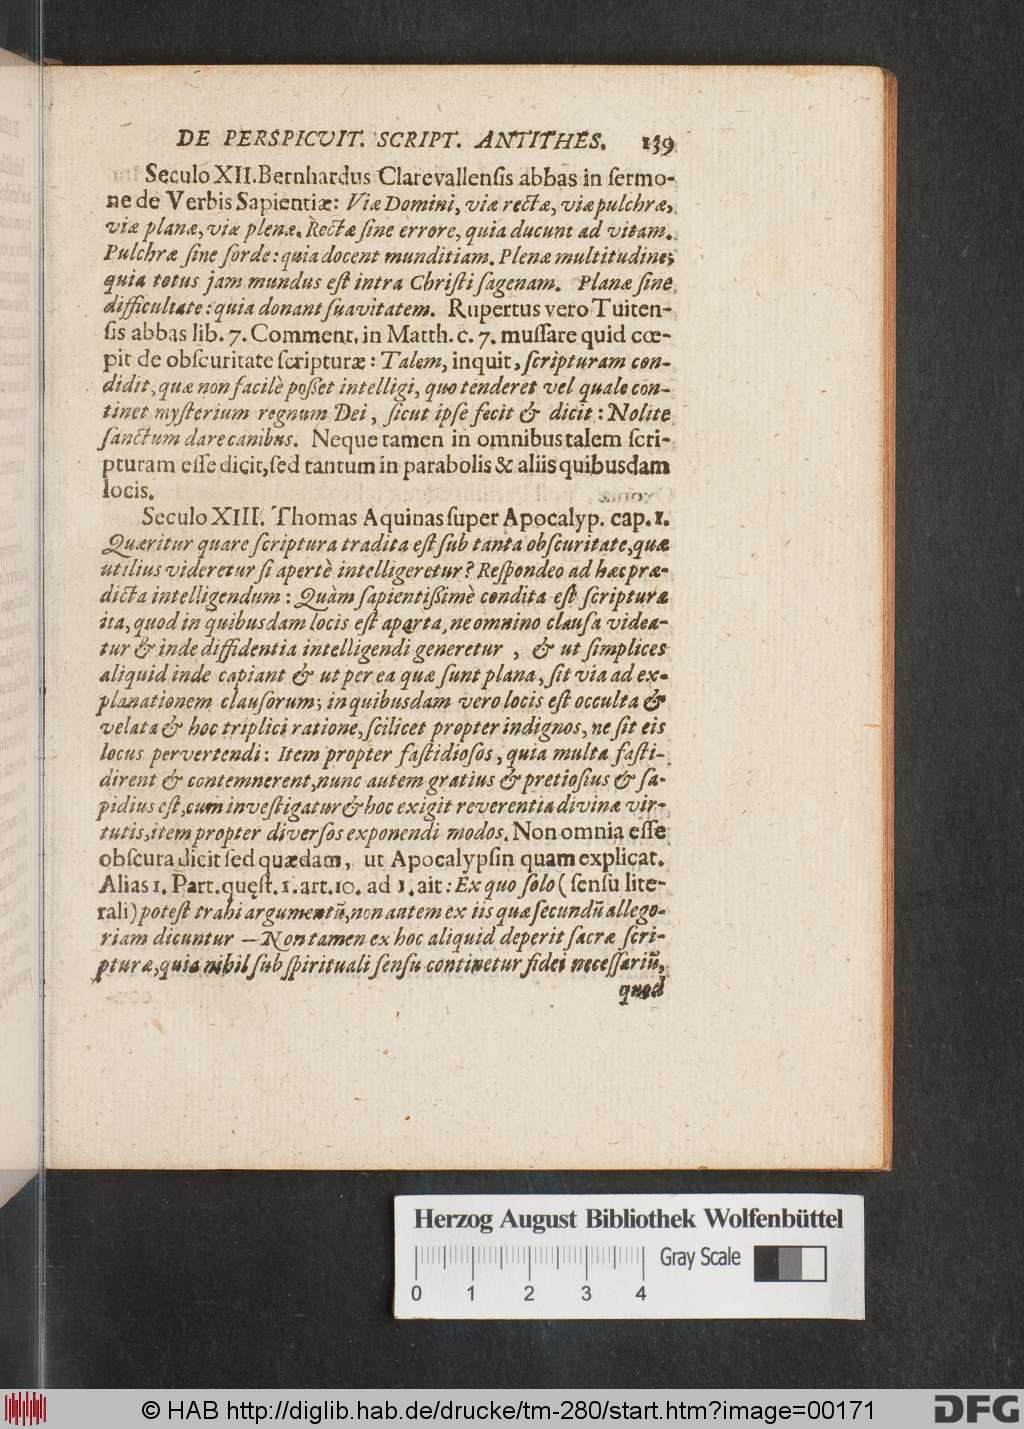 DE PERSPICVIT. SCRIPT. ANTITHES. 139
Seculo XII. Bernhardus Clarevallensis abbas in sermo-
ne de Verbis Sapientiæ: Viæ Domini, viæ rectæ, viæ pulchræ,
viæ planæ, viæ plenæ. Rectæ sine errore, quia ducunt ad vitam.
Pulchræ sine sorde: quia docent munditiam. Plenæ multitudine;
quia totus jam mundus est intra Christi sagenam. Planæ sine
difficultate: quia donant suavitatem. Rupertus vero Tuiten-
sis abbas lib. 7. Comment. in Matth. c. 7. mussare quid cœ-
pit de obscuritate scripturæ: Talem, inquit, scripturam con-
didit, quæ non facilè posset intelligi, quo tenderet vel quale con-
tinet mysterium regnum Dei, sicut ipse fecit & dicit: Nolite
sanctum dare canibus. Neque tamen in omnibus talem scri-
pturam esse dicit, sed tantum in parabolis & aliis quibusdam
locis.
Seculo XIII. Thomas Aquinas super Apocalyp. cap. 1.
Quæritur quare scriptura tradita est sub tanta obscuritate, quæ
utilius videretur si apertè intelligeretur? Respondeo ad hæc præ-
dicta intelligendum: Quàm sapientissimè condita est scriptura
ita, quod in quibusdam locis est aperta, ne omnino clausa videa-
tur & inde diffidentia intelligendi generetur, & ut simplices
aliquid inde capiant & ut per ea quæ sunt plana, sit via ad ex-
planationem clausorum; in quibusdam vero locis est occulta &
velata & hoc triplici ratione, scilicet propter indignos, ne sit eis
locus pervertendi: Item propter fastidiosos, quia multa fasti-
dirent & contemnerent, nunc autem gratius & pretiosius & sa-
pidius est, cum investigatur & hoc exigit reverentia divinæ vir-
tutis, item propter diversos exponendi modos. Non omnia esse
obscura dicit sed quædam, ut Apocalypsin quam explicat.
Alias 1. Part. quęst. 1. art. 10. ad 1. ait: Ex quo solo (sensu lite-
rali) potest trahi argumentū, non autem ex iis quæ secundū allego-
riam dicuntur — Non tamen ex hoc aliquid deperit sacræ scri-
pturæ, quia nihil sub spirituali sensu continetur fidei necessariū,
quod
Herzog August Bibliothek Wolfenbüttel
Gray Scale
0 1 2 3 4
© HAB http://diglib.hab.de/drucke/tm-280/start.htm?image=00171
DFG